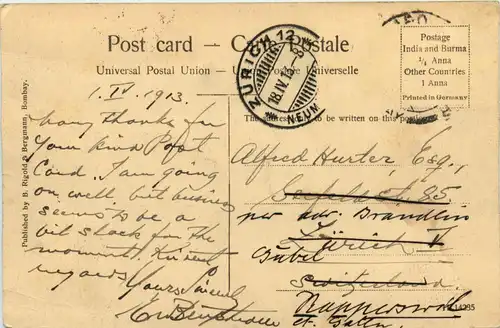 Post card — Carte Postale
Universal Postal Union — Union Postale Universelle
Postage
India and Burma
½ Anna
Other Countries
1 Anna
Printed in Germany
ZÜRICH 12
18.IV.13.8
NEUM
Published by B. Rigold & Bergmann, Bombay.
1. IV. 1913.
Many thanks for
your kind Post
Card. I am going
on well but business
seems to be a
bit slack for the
moment. Kindest
regards
Yours Sincerely
The address to be written on this
Alfred Hurter, Esq.,
Seefeldstr. 85
per adr. Brändlin
Zürich V
Gubel
Switzerland.
Rapperswil
St. Gallen